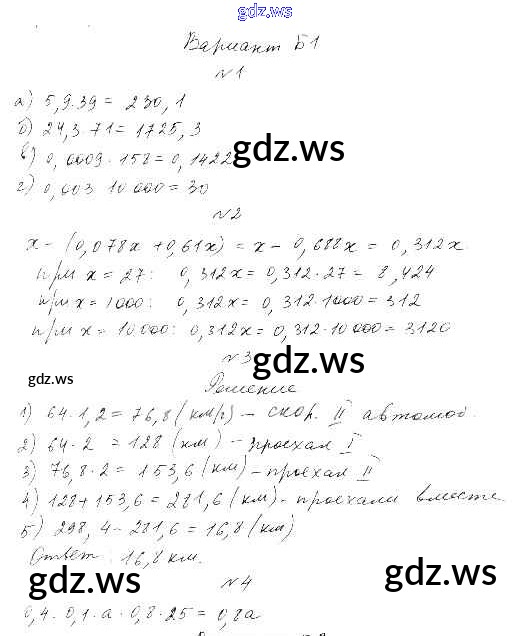 gdz.ws
Вариант Б1
№1
а) 5,9·39 = 230,1
б) 24,3·71 = 1725,3
в) 0,0009·158 = 0,1422
gdz.ws
г) 0,003·10000 = 30
№2
x - (0,078x + 0,61x) = x - 0,688x = 0,312x
при x = 27: 0,312x = 0,312·27 = 8,424
при x = 1000: 0,312x = 0,312·1000 = 312
при x = 10000: 0,312x = 0,312·10000 = 3120
№3
gdz.ws
gdz.ws
Решение
1) 64·1,2 = 76,8 (км/ч) - скор. II автомоб.
2) 64·2 = 128 (км) - проехал I
3) 76,8·2 = 153,6 (км) - проехал II
4) 128 + 153,6 = 281,6 (км) - проехали вместе
5) 298,4 - 281,6 = 16,8 (км)
Ответ: 16,8 км.
gdz.ws
gdz.ws
№4
0,4·0,1·a·0,8·25 = 0,8a